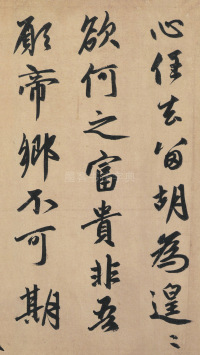 心任去留胡為遑〻
欲何之富貴非吾
願帝鄉不可期